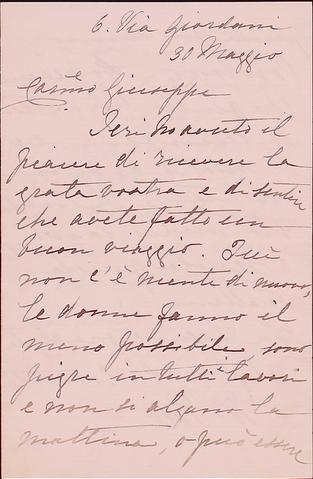 6. Via Giordani
30 Maggio
Carmo Giuseppe
Ieri ho avuto il
piacere di ricevere la
grata vostra e di sentire
che avete fatto un
buon viaggio. Qui
non c'è niente di nuovo,
le donne fanno il
meno possibile, sono
pigre in tutti i lavori
e non si alzano la
mattina, o può essere